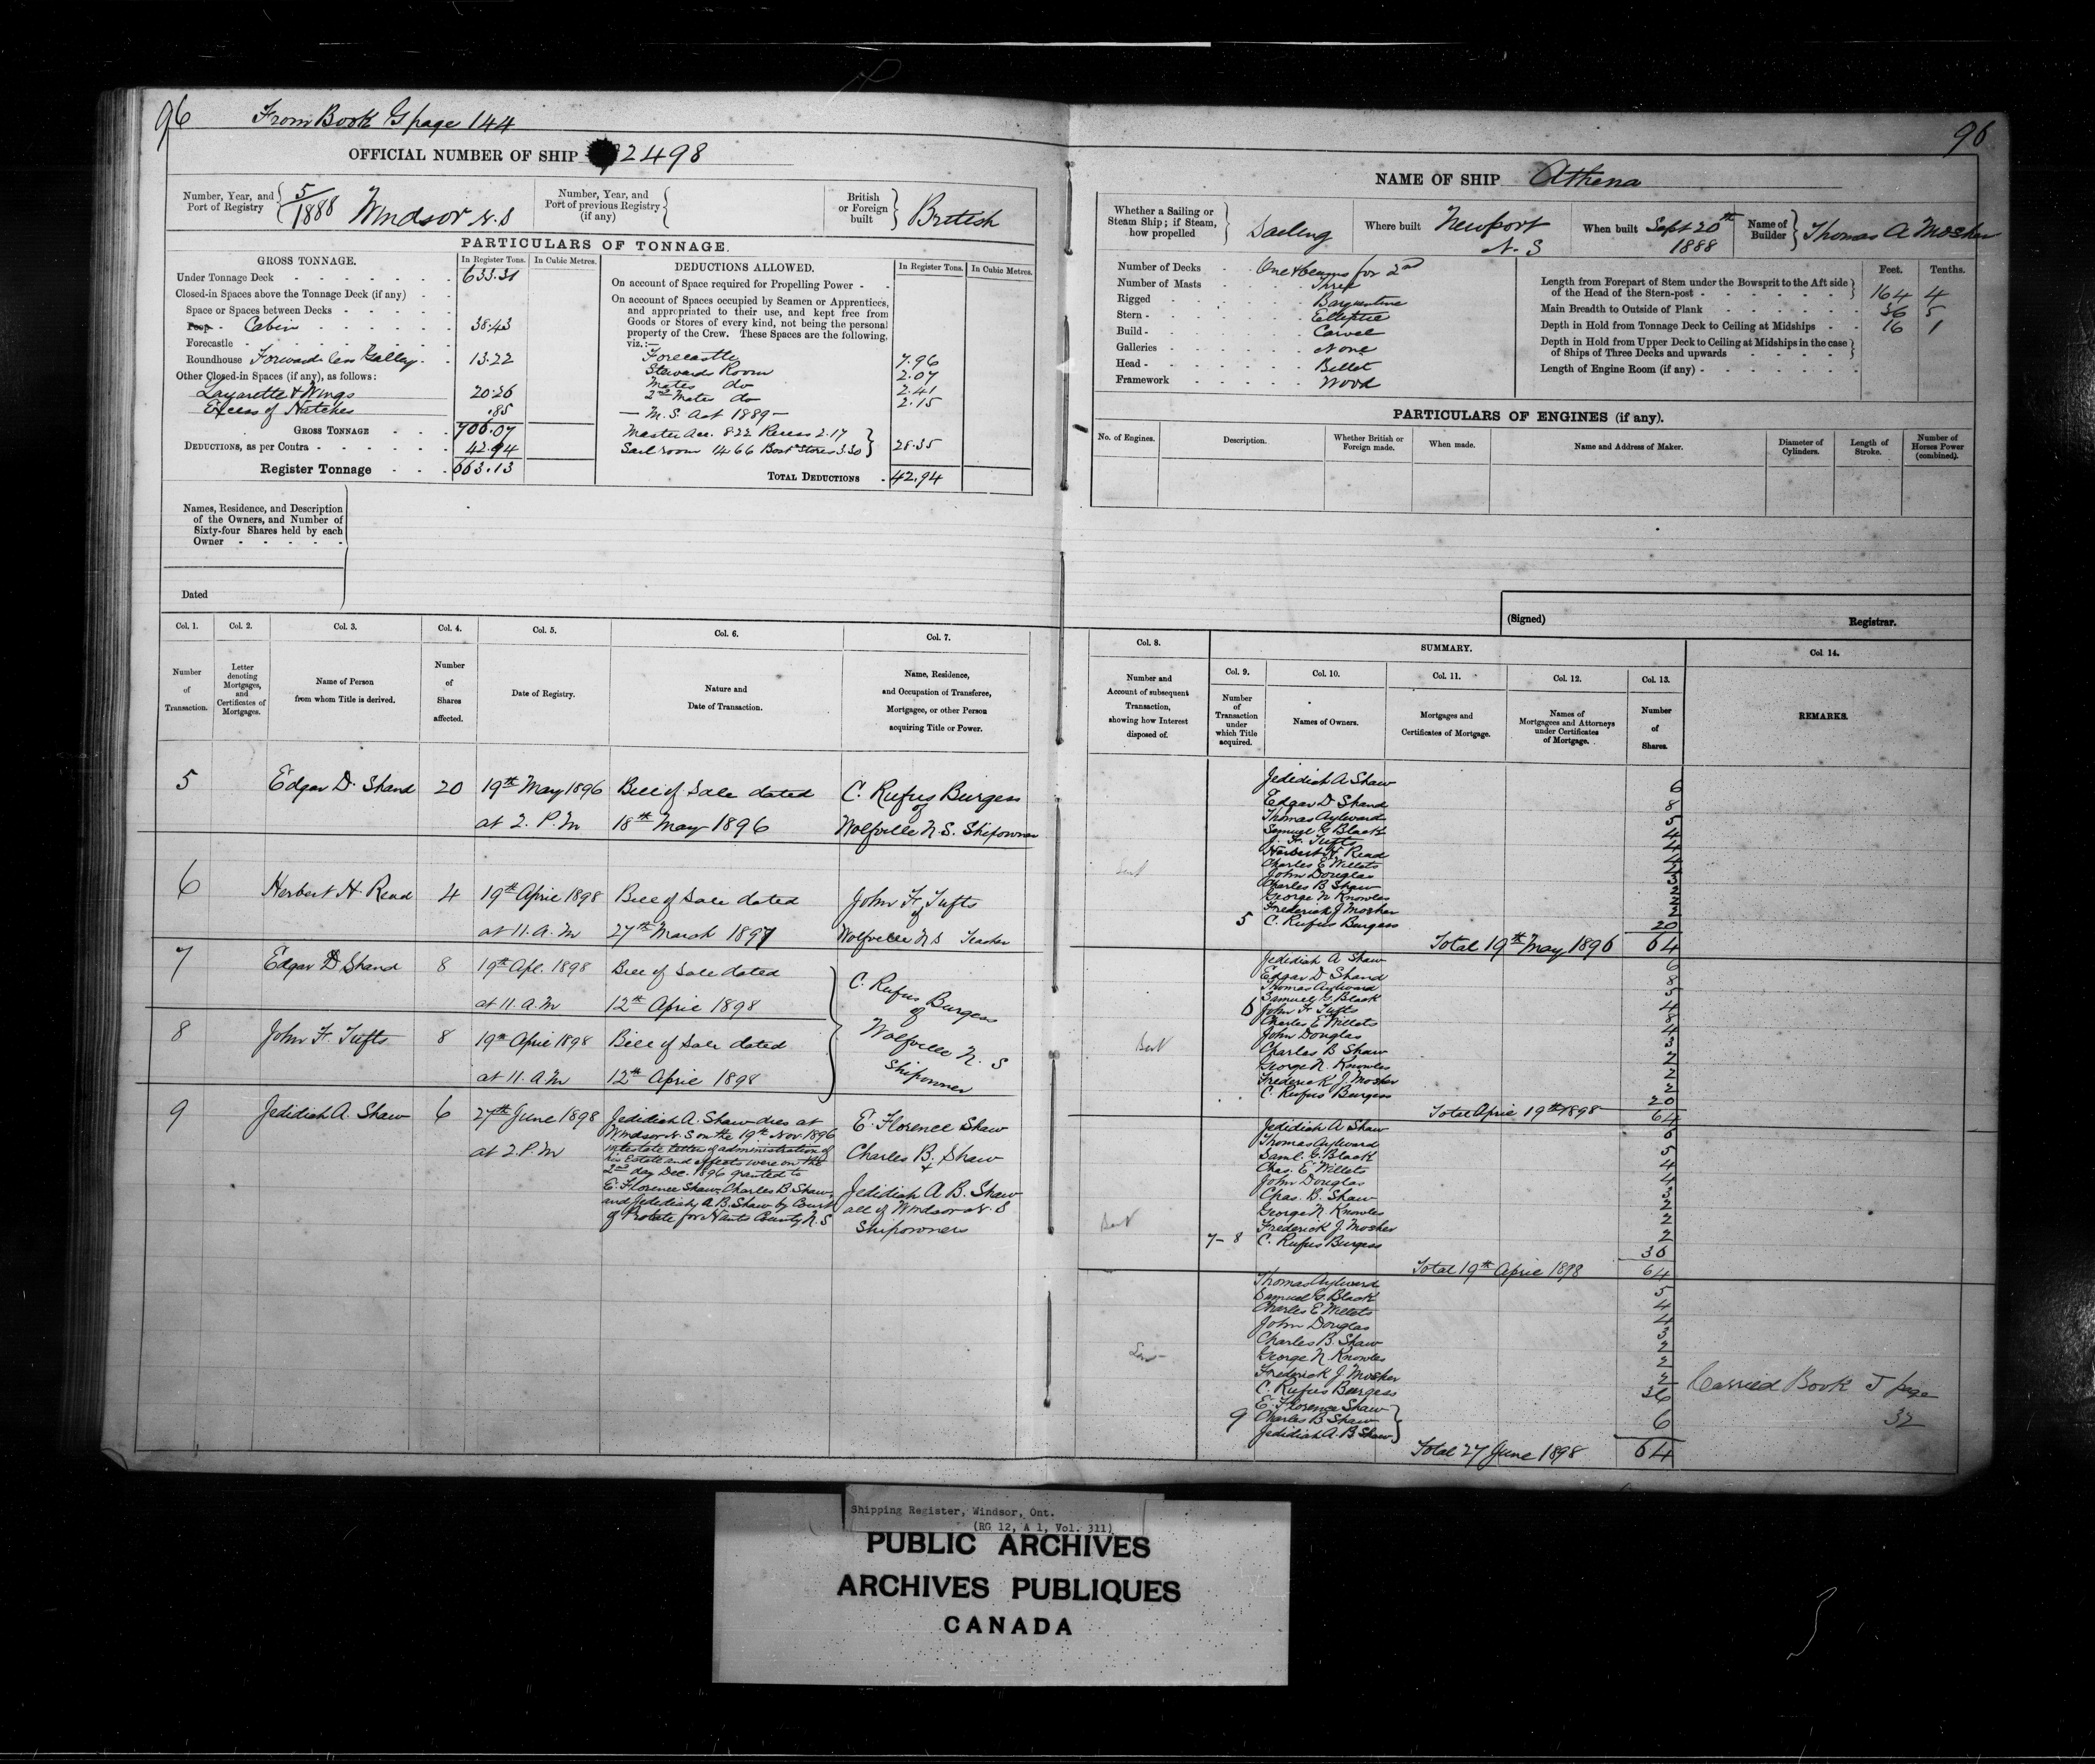 96 From Book G page 144
OFFICIAL NUMBER OF SHIP 92498
Number, Year, and Port of Registry 5/1888 Windsor N.S
Number, Year, and Port of previous Registry (if any)
British or Foreign built British
PARTICULARS OF TONNAGE.
GROSS TONNAGE. In Register Tons. In Cubic Metres.
Under Tonnage Deck 633.31
Closed-in Spaces above the Tonnage Deck (if any)
Space or Spaces between Decks
Poop Cabin 38.43
Forecastle
Roundhouse Forward less Galley 13.22
Other Closed-in Spaces (if any), as follows:
Lazarette & Wings 20.26
Excess of Hatches .85
GROSS TONNAGE 706.07
DEDUCTIONS, as per Contra 42.94
Register Tonnage 663.13
DEDUCTIONS ALLOWED. In Register Tons. In Cubic Metres.
On account of Space required for Propelling Power
On account of Spaces occupied by Seamen or Apprentices, and appropriated to their use, and kept free from Goods or Stores of every kind, not being the personal property of the Crew. These Spaces are the following, viz.:—
Forecastle 7.96
Stewards Room 2.07
Mates do 2.41
2nd Mates do 2.15
— M.S. Act 1889 —
Master Acc. 8.22 Recess 2.17
Sail room 14.66 Boat Stores 3.30 28.35
TOTAL DEDUCTIONS 42.94
Names, Residence, and Description of the Owners, and Number of Sixty-four Shares held by each Owner
Dated
Col. 1. Col. 2. Col. 3. Col. 4. Col. 5. Col. 6. Col. 7.
Number of Transaction.
Letter denoting Mortgages, and Certificates of Mortgages.
Name of Person from whom Title is derived.
Number of Shares affected.
Date of Registry.
Nature and Date of Transaction.
Name, Residence, and Occupation of Transferee, Mortgagee, or other Person acquiring Title or Power.
5 Edgar D. Shand 20 19th May 1896 Bill of Sale dated C. Rufus Burgess
of
at 2. P.M 18th May 1896 Wolfville N.S. Shipowner
6 Herbert H. Read 4 19th April 1898 Bill of Sale dated John F. Tufts
of
at 11. A. M 27th March 1897 Wolfville N S Teacher
7 Edgar D Shand 8 19th Apl. 1898 Bill of Sale dated C. Rufus Burgess
of
at 11. A.M 12th April 1898
8 John F. Tufts 8 19th April 1898 Bill of Sale dated Wolfville N. S
at 11. A.M 12th April 1898 Shipowner
9 Jedidiah A. Shaw 6 27th June 1898 Jedidiah A. Shaw dies at E. Florence Shaw
Windsor N.S on the 19th Nov 1896
at 2. P.M intestate letter of administration of Charles B. Shaw
his Estate and effects were on the +
2nd day Dec. 1896 granted to
E. Florence Shaw, Charles B. Shaw, Jedidiah A B. Shaw
and Jedediah A B. Shaw by Court all of Windsor N. S
of Probate for Hants County N. S Shipowners
96
NAME OF SHIP Athena
Whether a Sailing or Steam Ship; if Steam, how propelled Sailing
Where built Newport N. S
When built Sept 20th 1888
Name of Builder Thomas A Mosher
Number of Decks One & beams for 2nd
Number of Masts Three
Rigged Barquentine
Stern Elliptic
Build Carvel
Galleries None
Head Billet
Framework Wood
Feet. Tenths.
Length from Forepart of Stem under the Bowsprit to the Aft side of the Head of the Stern-post 164 4
Main Breadth to Outside of Plank 36 5
Depth in Hold from Tonnage Deck to Ceiling at Midships 16 1
Depth in Hold from Upper Deck to Ceiling at Midships in the case of Ships of Three Decks and upwards
Length of Engine Room (if any)
PARTICULARS OF ENGINES (if any).
No. of Engines. Description. Whether British or Foreign made. When made. Name and Address of Maker. Diameter of Cylinders. Length of Stroke. Number of Horses Power (combined).
(Signed) Registrar.
Col. 8. SUMMARY. Col. 14.
Col. 9. Col. 10. Col. 11. Col. 12. Col. 13.
Number and Account of subsequent Transaction, showing how Interest disposed of.
Number of Transaction under which Title acquired.
Names of Owners.
Mortgages and Certificates of Mortgage.
Names of Mortgagees and Attorneys under Certificates of Mortgage.
Number of Shares.
REMARKS.
Jedidiah A Shaw 6
Edgar D Shand 8
Thomas Aylward 5
Samuel G Black 4
J. F. Tufts 4
Herbert H. Read 4
Sent Charles E Willets 4
John Douglas 3
Charles B Shaw 2
George N Knowles 2
Frederick J Mosher 2
5 C. Rufus Burgess 20
Total 19th May 1896 64
Jedidiah A Shaw 6
Edgar D Shand 8
Thomas Aylward 5
Samuel G Black 4
6 John F Tufts 8
Charles E Willets 4
Sent John Douglas 3
Charles B Shaw 2
George N. Knowles 2
Frederick J. Mosher 2
C. Rufus Burgess 20
Total April 19th 1898 64
Jedidiah A Shaw 6
Thomas Aylward 5
Saml. G. Black 4
Chas. E Willets 4
John Douglas 3
Chas. B. Shaw 2
George N. Knowles 2
Sent Frederick J. Mosher 2
7-8 C. Rufus Burgess 36
Total 19th April 1898 64
Thomas Aylward 5
Samuel G. Black 4
Charles E Willets 4
John Douglas 3
Charles B. Shaw 2
Sent George N. Knowles 2
Frederick J Mosher 2
C. Rufus Burgess 36
E. Florence Shaw
9 Charles B Shaw 6
Jedidiah A. B Shaw
Total 27 June 1898 64
Carried Book J page
32
Shipping Register, Windsor, Ont.
(RG 12, A 1, Vol. 311)
PUBLIC ARCHIVES
ARCHIVES PUBLIQUES
CANADA